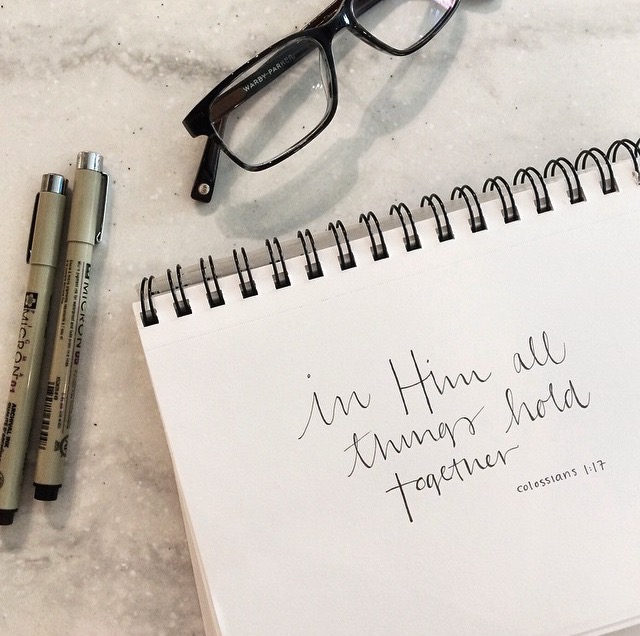 WARBY PARKER
MICRON
MICRON 08
ARCHIVAL INK
in Him all
things hold
together
colossians 1:17